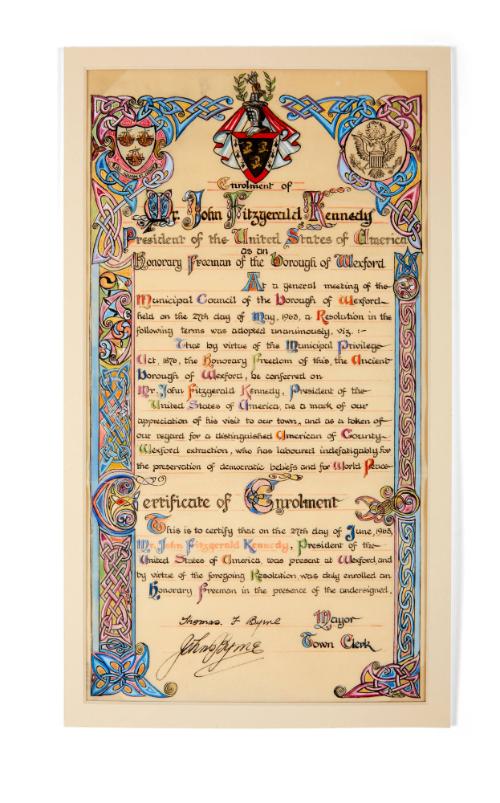 Enrolment of
Mr. John Fitzgerald Kennedy
President of the United States of America
as an
Honorary Freeman of the Borough of Wexford
At a general meeting of the
Municipal Council of the Borough of Wexford
held on the 27th day of May, 1963, a Resolution in the
following terms was adopted unanimously, viz. :-
That by virtue of the Municipal Privilege
Act, 1876, the Honorary Freedom of this, the Ancient
Borough of Wexford, be conferred on
Mr. John Fitzgerald Kennedy, President of the
United States of America, as a mark of our
appreciation of his visit to our town, and as a token of
our regard for a distinguished American of County
Wexford extraction, who has laboured indefatigably for
the preservation of democratic beliefs and for World Peace
Certificate of Enrolment
This is to certify that on the 27th day of June, 1963,
Mr. John Fitzgerald Kennedy, President of the
United States of America, was present at Wexford, and
by virtue of the foregoing Resolution was duly enrolled an
Honorary Freeman in the presence of the undersigned,
Thomas. F Byrne Mayor
John Byrne Town Clerk